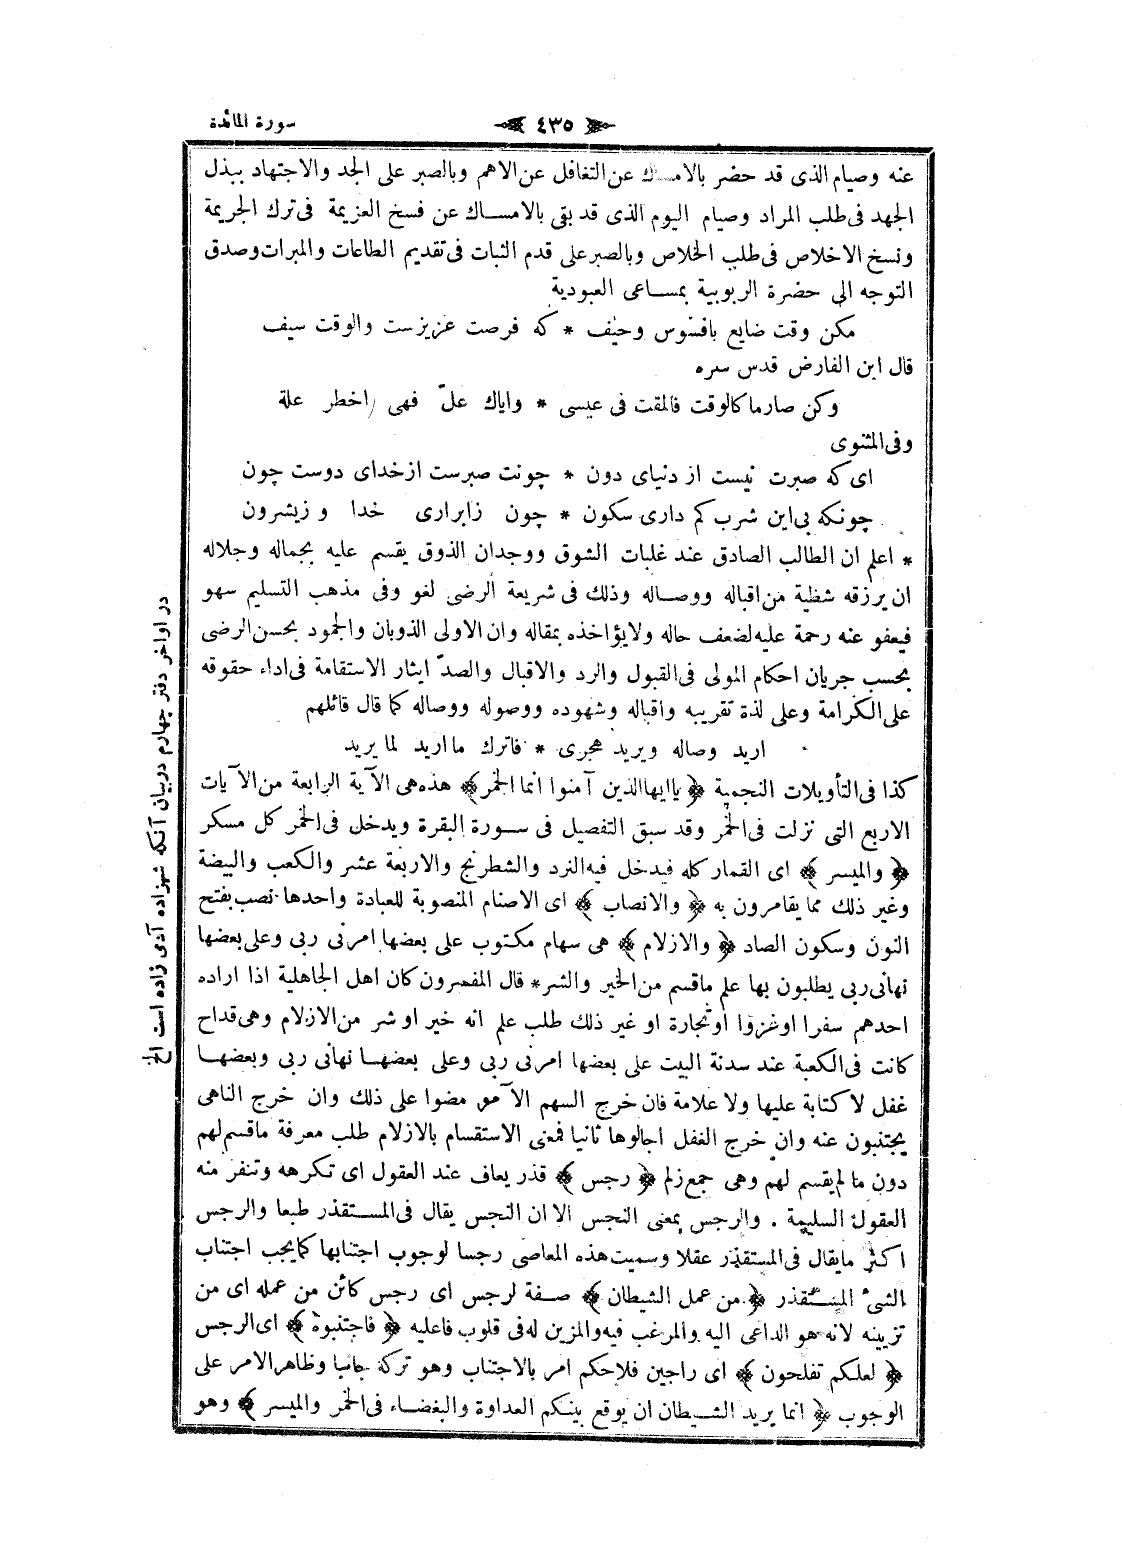 سورة المائدة
٤٣٥
عنه وصيام الذى قد حضر بالامساك عن التغافل عن الاهم وبالصبر على الجد والاجتهاد ببذل
الجهد فى طلب المراد وصيام اليوم الذى قد بقى بالامساك عن فسخ العزيمة فى ترك الجريمة
ونسخ الاخلاص فى طلب الخلاص وبالصبر على قدم الثبات فى تقديم الطاعات والمبرات وصدق
التوجه الى حضرة الربوبية بمساعى العبودية
مكن وقت ضايع بافسوس وحيف * كه فرصت عزيزست والوقت سيف
قال ابن الفارض قدس سره
وكن صارما كالوقت فالمقت فى عيسى * واياك علّ فهى اخطر علة
وفى المثنوى
اى كه صبرت نيست از دنياى دون * چونت صبرست از خداى دوست چون
چونكه بى اين شرب كم دارى سكون * چون زابرارى خدا و زيشرون
* اعلم ان الطالب الصادق عند غلبات الشوق ووجدان الذوق يقسم عليه بجماله وجلاله
ان يرزقه شظية من اقباله ووصاله وذلك فى شريعة الرضى لغو وفى مذهب التسليم سهو
فيعفو عنه رحمة عليه لضعف حاله ولا يؤاخذه بمقاله وان الاولى الذوبان والجمود بحسن الرضى
بحسب جريان احكام المولى فى القبول والرد والاقبال والصدّ ايثار الاستقامة فى اداء حقوقه
على الكرامة وعلى لذة تقريبه واقباله وشهوده ووصوله ووصاله كما قال قائلهم
اريد وصاله ويريد هجرى * فاترك ما اريد لما يريد
كذا فى التأويلات النجمية ﴿ يا ايها الذين آمنوا انما الخمر ﴾ هذه هى الآية الرابعة من الآيات
الاربع التى نزلت فى الخمر وقد سبق التفصيل فى سورة البقرة ويدخل فى الخمر كل مسكر
﴿ والميسر ﴾ اى القمار كله فيدخل فيه النرد والشطرنج والاربعة عشر والكعب والبيضة
وغير ذلك مما يقامرون به ﴿ والانصاب ﴾ اى الاصنام المنصوبة للعبادة واحدها نصب بفتح
النون وسكون الصاد ﴿ والازلام ﴾ هى سهام مكتوب على بعضها امرنى ربى وعلى بعضها
نهانى ربى يطلبون بها علم ما قسم من الخير والشر * قال المفسرون كان اهل الجاهلية اذا اراده
احدهم سفرا او غزوا او تجارة او غير ذلك طلب علم انه خير او شر من الازلام وهى قداح
كانت فى الكعبة عند سدنة البيت على بعضها امرنى ربى وعلى بعضها نهانى ربى وبعضها
غفل لا كتابة عليها ولا علامة فان خرج السهم الآمر مضوا على ذلك وان خرج الناهى
يجتنبون عنه وان خرج الغفل اجالوها ثانيا فمعنى الاستقسام بالازلام طلب معرفة ما قسم لهم
دون ما لم يقسم لهم وهى جمع زلم ﴿ رجس ﴾ قذر يعاف عند العقول اى تكرهه وتنفر منه
العقول السليمة . والرجس بمعنى النجس الا ان النجس يقال فى المستقذر طبعا والرجس
اكثر ما يقال فى المستقذر عقلا وسميت هذه المعاصى رجسا لوجوب اجتنابها كما يجب اجتناب
الشئ المستقذر ﴿ من عمل الشيطان ﴾ صفة لرجس اى رجس كائن من عمله اى من
تزيينه لانه هو الداعى اليه والمرغب فيه والمزين له فى قلوب فاعليه ﴿ فاجتنبوه ﴾ اى الرجس
﴿ لعلكم تفلحون ﴾ اى راجين فلاحكم امر بالاجتناب وهو تركه جانبا وظاهر الامر على
الوجوب ﴿ انما يريد الشيطان ان يوقع بينكم العداوة والبغضاء فى الخمر والميسر ﴾ وهو
در اواخر دفتر چهارم دربيان آنكه شهزاده آدمى زاده است الخ